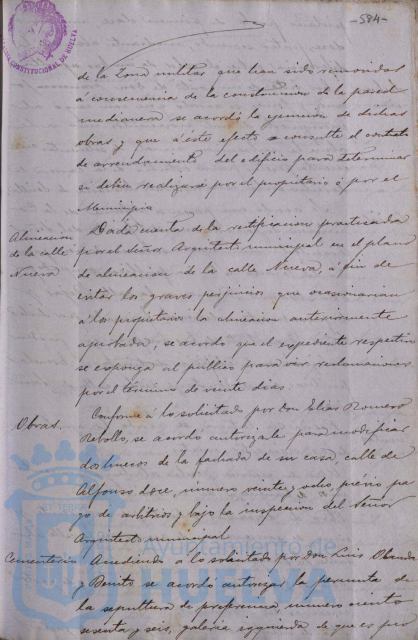 -584-
de la Zona militar que han sido removidos
á consecuencia de la construccion de la pared
medianera se acordó la ejecucion de dichas
obras y que á este efecto se consulte el contrato
de arrendamiento del edificio para determinar
si deben realizarse por el propietario ó por el
Municipio
Alineacion
de la calle
Nueva
Dada cuenta de la rectificacion practicada
por el Señor Arquitecto municipal en el plano
de alineacion de la calle Nueva, á fin de
evitar los graves perjuicios que ocasionarian
á los propietarios la alineacion anteriormente
aprobada, se acordó que el expediente respectivo
se esponga al público para oir reclamaciones
por el término de veinte dias.
Obras.
Conforme á lo solicitado por Don Elias Romero
Rebollo, se acordó autorizarle para modificar
dos huecos de la fachada de su casa, calle de
Alfonso doce, número veinte y ocho previo pa
go de arbitrios y bajo la inspeccion del Señor
Arquitecto municipal
Cementerio
Accediendo á lo solicitado por don Luis
y Benito se acordó autorizar la permuta de
la sepultura de preferencia, número ciento
sesenta y seis, galeria izquierda de que es por
Ayuntamiento de
HUELVA
CONSTITUCIONAL DE HUELVA